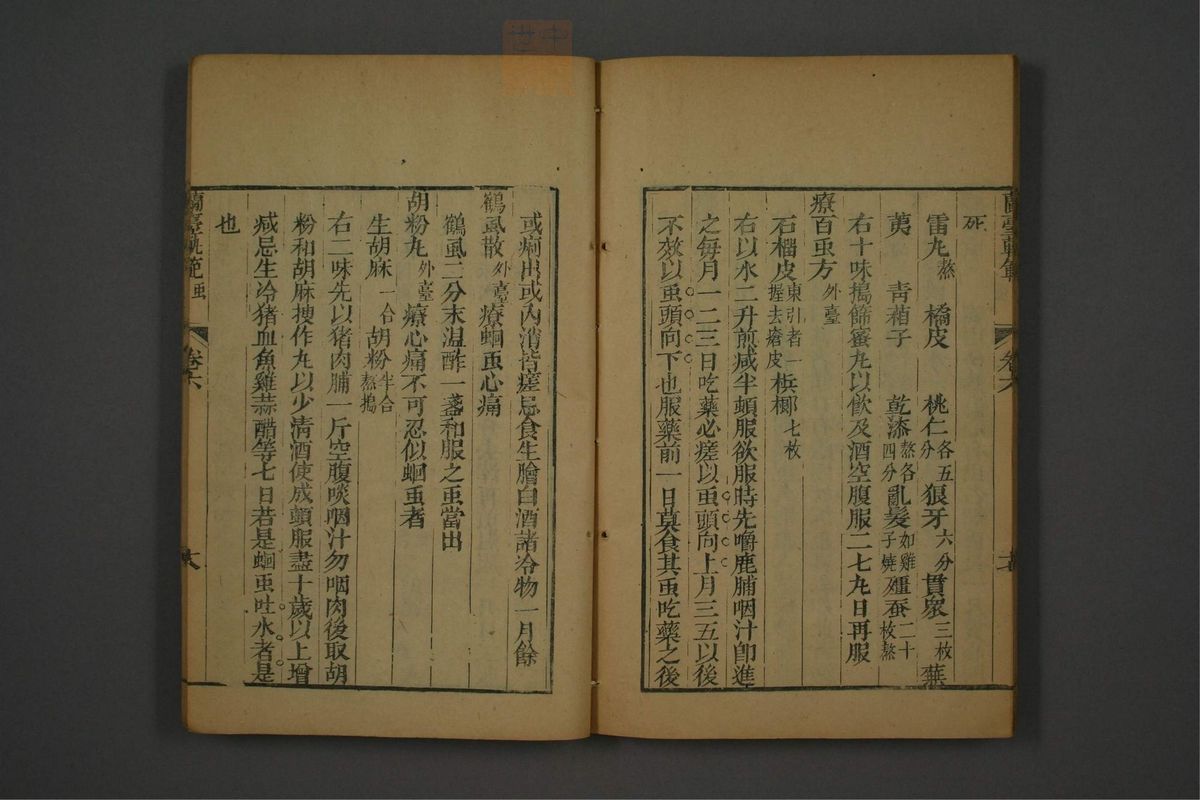 蘭臺軌範　卷六
死
雷丸熬　橘皮　桃仁各五分　狼牙六分　貫眾三枚　蕪
荑　青葙子　乾漆熬各四分　亂髮如雞子燒　殭蚕二十枚熬
右十味搗篩蜜丸以飲及酒空腹服二七丸日再服
療百虫方外臺
石榴皮東引者一握去瘡皮　梹榔七枚
右以水二升煎减半頓服欲服時先嚼鹿脯咽汁卽進
之每月一二三日吃藥必瘥以虫頭向上月三五以後
不效以虫頭向下也服藥前一日莫食其虫吃藥之後
或痢出或內消皆瘥忌食生膾白酒諸冷物一月餘
鶴虱散外臺　療蛔虫心痛
鶴虱二分末温酢一盞和服之虫當出
胡粉丸外臺　療心痛不可忍似蛔虫者
生胡麻一合　胡粉半合熬搗
右二味先以猪肉脯一斤空腹啖咽汁勿咽肉後取胡
粉和胡麻搜作丸以少清酒使成頓服盡十歲以上增
减忌生冷猪血魚雞蒜醋等七日若是蛔虫吐水者是
也
蘭臺軌範　虫　卷六